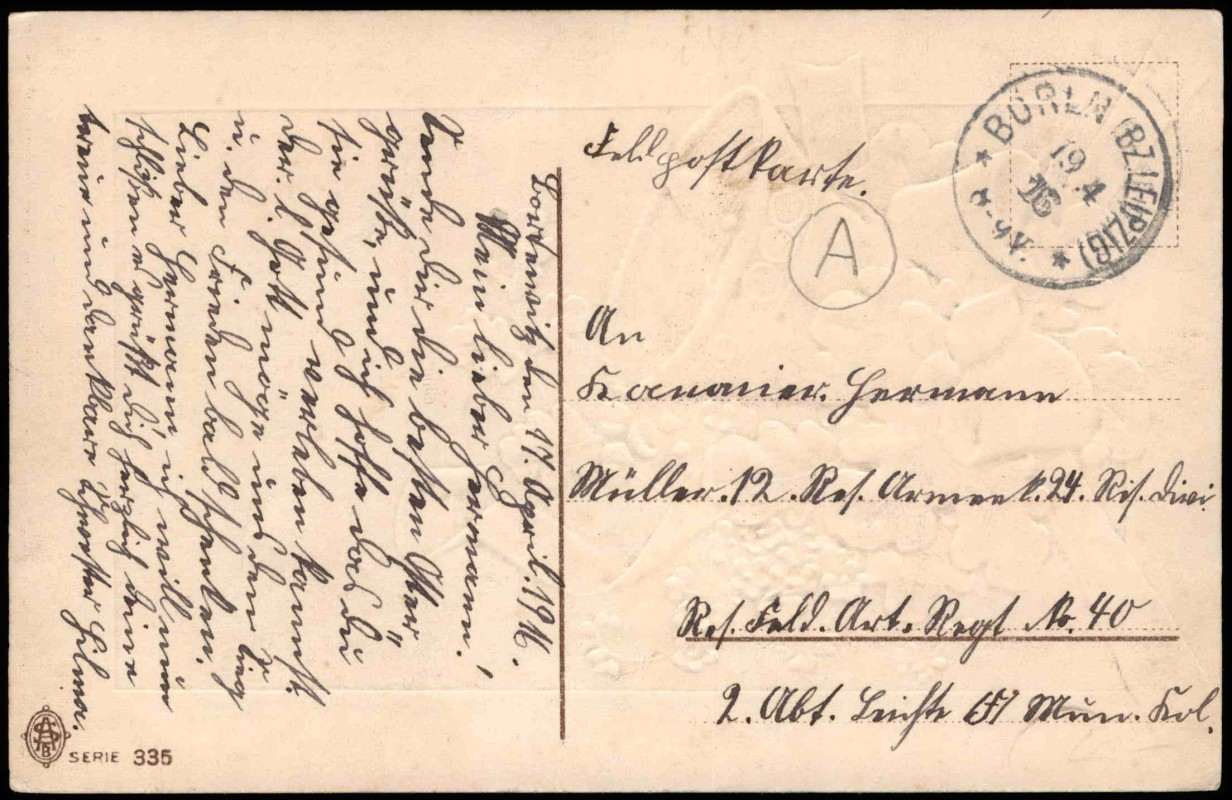 Feldpostkarte.
A
BÖRLN (BZ. LEIPZIG)
19.4
16
8-9V.
An
Kanonier. Hermann
Müller. 12. Res. Armeek. 24. Res. Divi.
Res. Feld. Art. Regt No. 40
2. Abt. Leichte (F) Mun. Kol.
Bortewitz den 17. April. 1916.
Mein lieber Hermann!
Sende dir die besten Oster
grüße, und ich hoffe das du
sie gesund verleben kannst.
der l. Gott möge uns den Sieg
u. den Frieden bald schenken.
Lieber Hermann ich will nun
schließen es grüßt dich herzlich deine
treue und dankbare Schwester Hilma.
SERIE 335